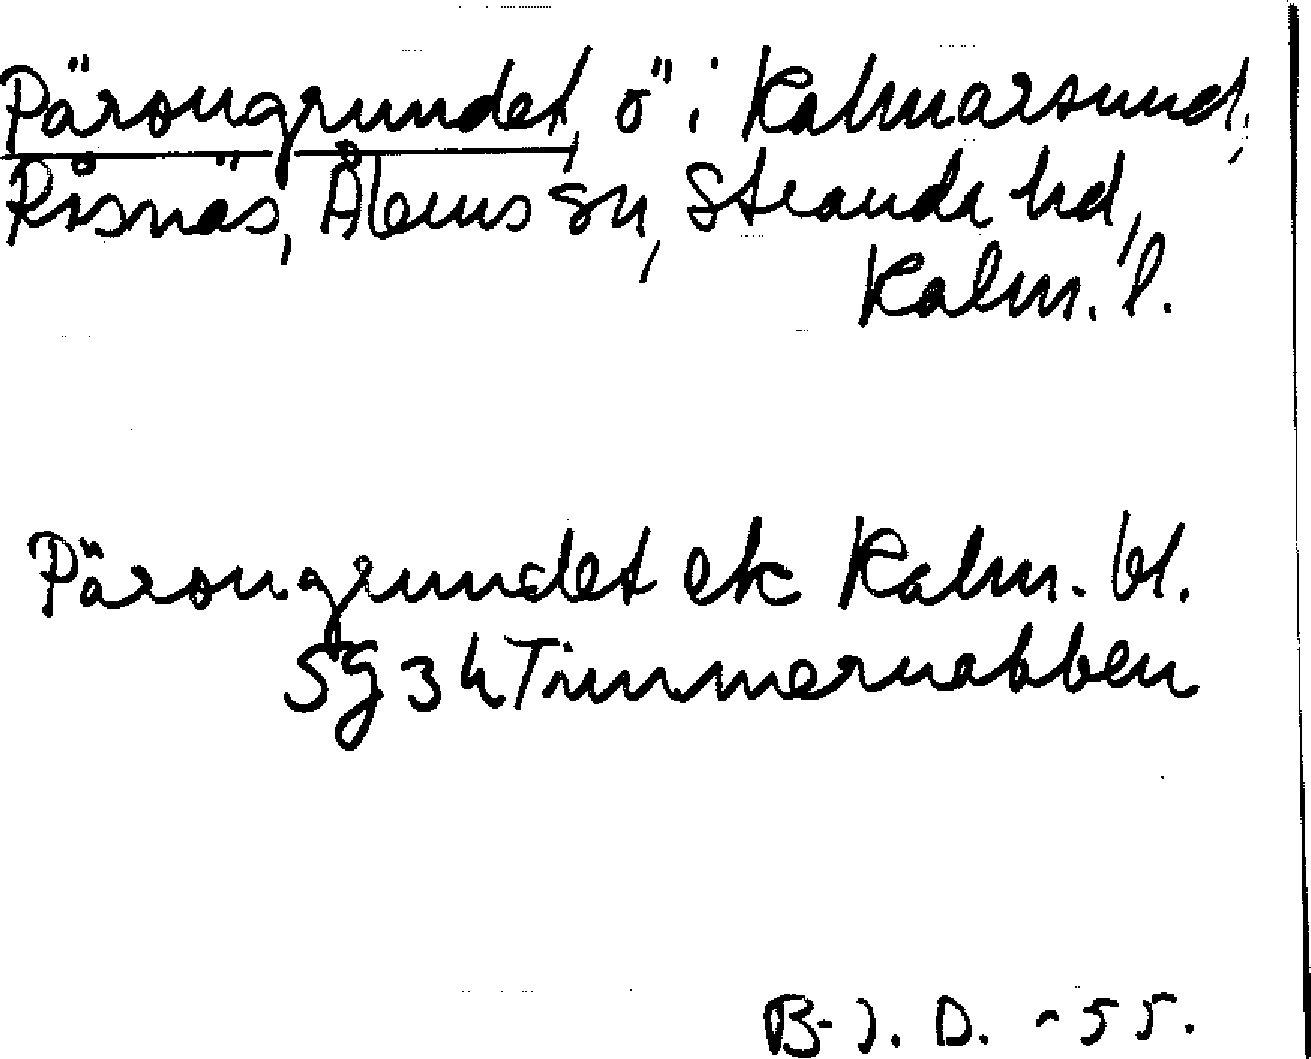 Pärongrundet, ö i Kalmarsund,
Råsnäs, Ålems sn, Stranda hd,
Kalm. l.
Pärongrundet ek Kalm. bl.
5g 3h Timmernabben
B-J. D. -55.